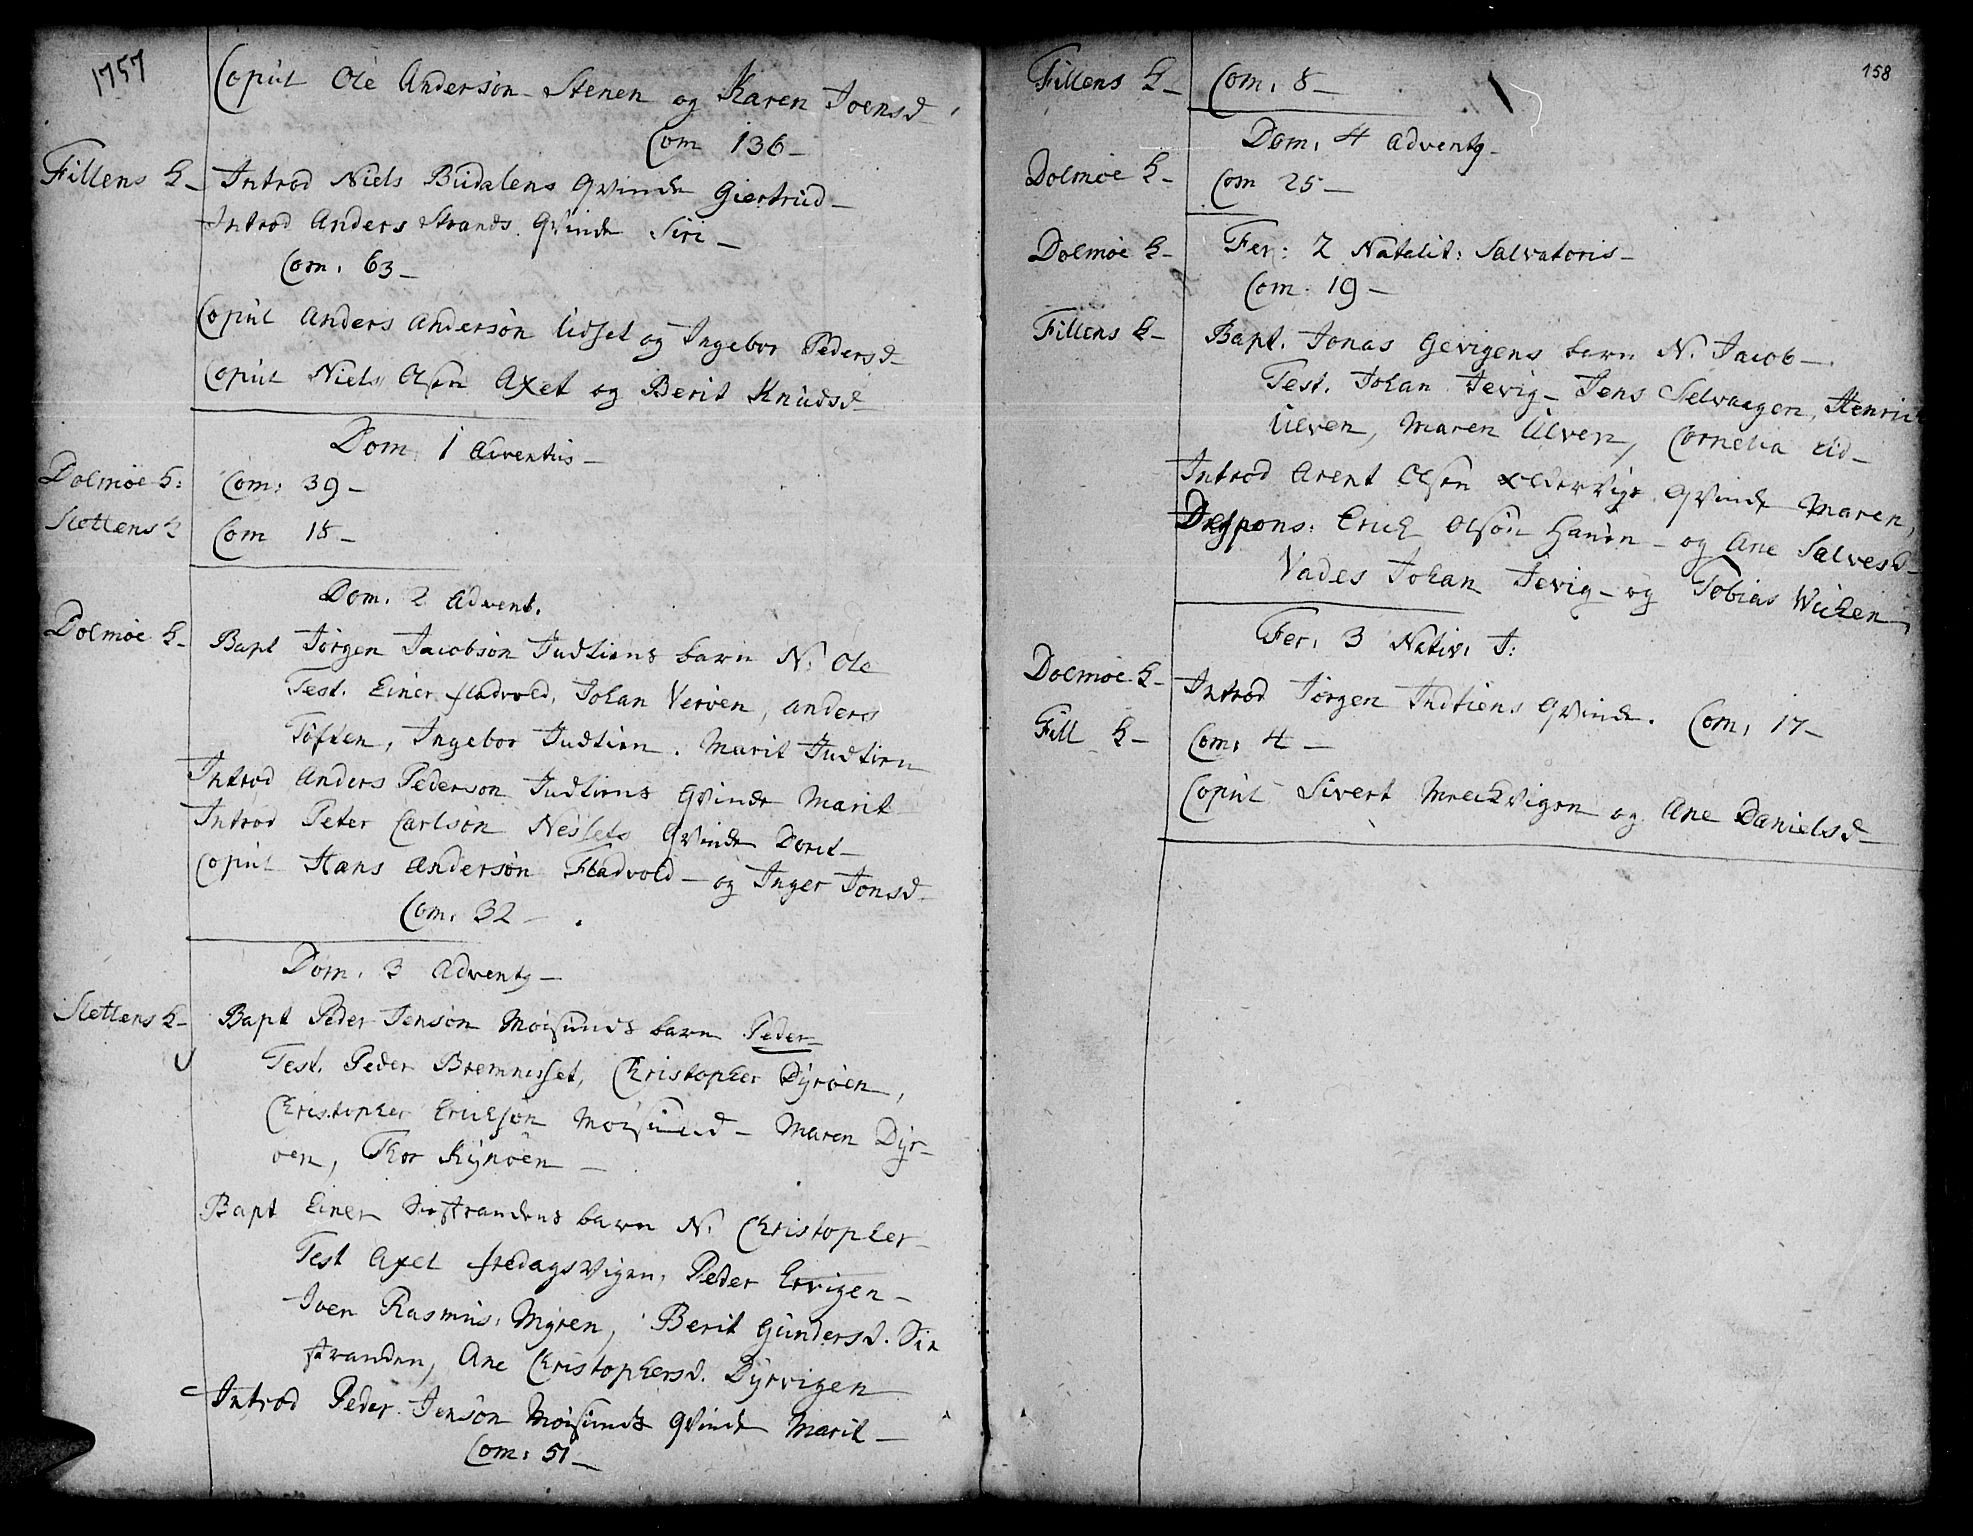 1757
Copul Ole Andersøn Stenen og Karen Joensd
Com 136 —
Fillens K — Introd Niels Budalens Qvinde Giertrud —
Introd Anders Strands Qvinde Siri —
Com. 63 —
Copul Anders Andersøn Lidset og Ingebor Pedersd
Copul Niels Olsøn Axet og Berit Knudsd
Dom. 1 Adventus —
Dolmøe K: Com: 39 —
Slettens K Com 18 —
Dom. 2 Advent.
Dolmøe K — Bapt Jørgen Jacobsøn Indtiens barn N. Ole
Test. Einer fladvold, Johan Verøen, Anders
Toften, Ingebor Indtien. Marit Indtien
Introd Anders Pedersøn Indtiens Qvinde Marit
Introd Peter Carlsøn Nessets Qvinde Dorit —
Copul Hans Andersøn Fladvold — og Inger Jonsd —
Com. 32 —
Dom. 3 Advents —
Slettens K — Bapt Peder Jensøn Moisunds barn Peder —
Test. Peder Bremnesset, Christopher Dÿrøen,
Christopher Erichsøn Moisund — Maren Dÿr-
øen, Thor Kÿnøen —
Bapt Einer Siestrandens barn N. Christopher —
Test Axel fredagsvigen, Peder Ervigen —
Iver Rasmus. Mÿren, Berit Gundersd. Sie
stranden, Ane Christophersd. Dÿrvigen
Introd Peder Jensøn Moisunds Qvinde Marit —
Com: 51 —
158
Fillens K — Com. 8 —
Dom. 4 Advents —
Dolmøe K — Com 25 —
Dolmøe K — Fer: 2 Natalit: Salvatoris —
Com. 19 —
Fillens K — Bapt. Jonas Gevigens barn N. Jacob —
Test. Johan Jevig — Jens Selvaagen, Henrich
Ulven, Maren Ulven, Cornelia Eid —
Introd Arent Olsøn Qvinde Maren,
Despons: Erich Olsøn Hanøn — og Ane Salvesd —
Vades Johan Jevig — og Tobias Wichen
Fer. 3 Nativ. J:
Dolmøe K — Introd Jørgen Indtiens Qvinde. Com. 17 —
Fill K — Com. 4 —
Copul Sivert Mrechvigen og Ane Danielsd —